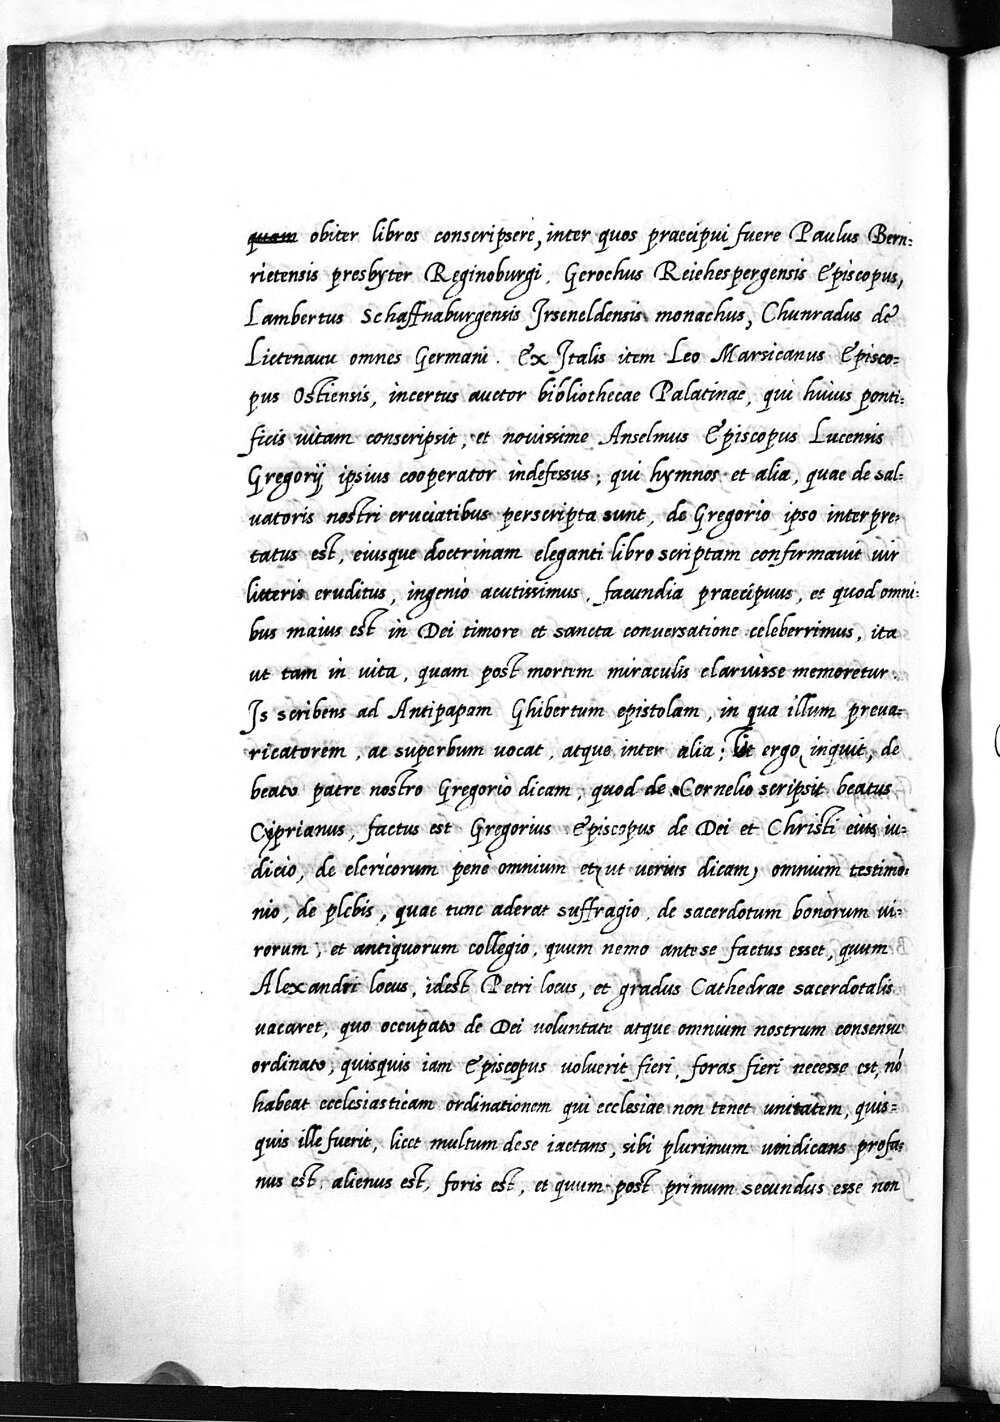 quam obiter libros conscripsere, inter quos praecipui fuere Paulus Bern=
rietensis presbyter Reginoburgi. Gerochus Reichespergensis Episcopus,
Lambertus Schaffnaburgensis Irseneldensis monachus, Chunradus de
Lietenauu omnes Germani. Ex Italis item Leo Marsicanus Episco=
pus Ostiensis, incertus auctor bibliothecae Palatinae, qui huius ponti=
ficis uitam conscripsit, et nouissime Anselmus Episcopus Lucensis
Gregorij ipsius cooperator indefessus; qui hymnos et alia, quae de sal=
uatoris nostri cruciatibus perscripta sunt, de Gregorio ipso interpre=
tatus est, eiusque doctrinam eleganti libro scriptam confirmauit uir
litteris eruditus, ingenio acutissimus, facundia praecipuus, et quod omni=
bus maius est in Dei timore et sancta conuersatione celeberrimus, ita
ut tam in uita, quam post mortem miraculis claruisse memoretur.
Is scribens ad Antipapam Ghibertum epistolam, in qua illum preua=
ricatorem, ac superbum uocat, atque inter alia; Ut ergo, inquit, de
beato patre nostro Gregorio dicam, quod de Cornelio scripsit beatus
Cyprianus, factus est Gregorius Episcopus de Dei et Christi eius iu=
dicio, de clericorum penè omnium et, ut uerius dicam, omnium testimo=
nio, de plebis, quae tunc aderat suffragio, de sacerdotum bonorum ui=
rorum, et antiquorum collegio, quum nemo ante se factus esset, quum
Alexandri locus, idest Petri locus, et gradus Cathedrae sacerdotalis
uacaret, quo occupato de Dei uoluntate atque omnium nostrum consensu
ordinato, quisquis iam Episcopus uoluerit fieri, foras fieri necesse est, nō
habeat ecclesiasticam ordinationem qui ecclesiae non tenet unitatem, quis=
quis ille fuerit, licet multum de se iactans, sibi plurimum uendicans profa=
nus est, alienus est, foris est, et quum post primum secundus esse non